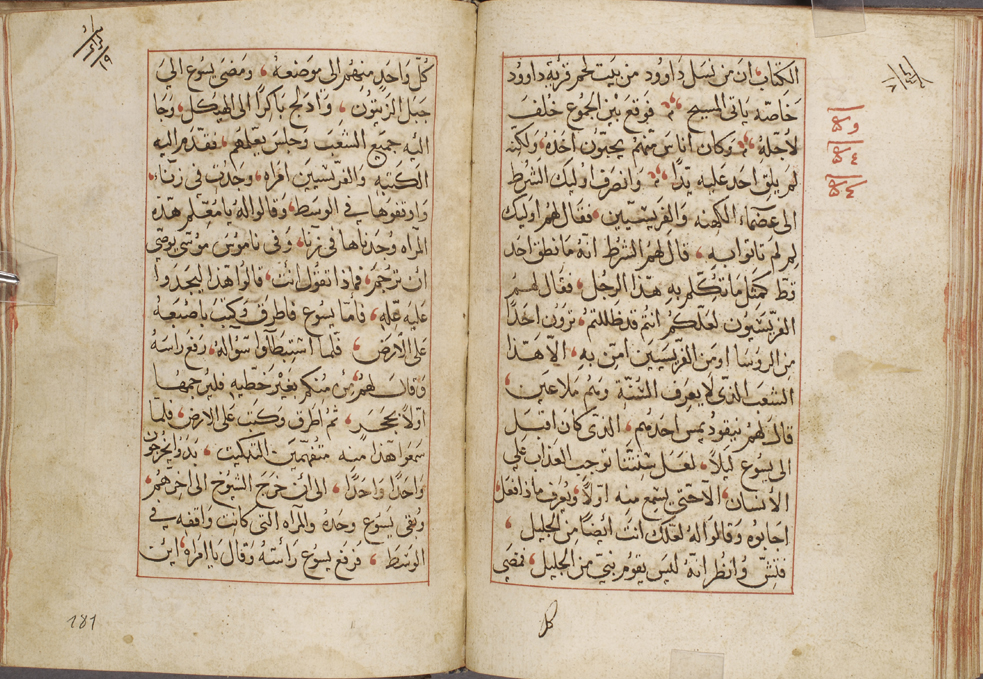 الكتاب ان من نسل داوود من بيت لحم قرية داوود
خاصّه ياتى المسيح فوقع بين الجموع خلف
لاجله وكان اناس منهم يحبون اخذه ولكنه
لم يلق احد عليه يدًا وانصرف اوليك الشرط
الى عضماء الكهنه والفريسيين فقال لهم اوليك
لِم لم تاتوا به قال لهم الشرط انه ما نطق احد
قط كمثل ما تكلم به هذا الرجل فقال لهم
الفريسيون لعلكم انتم قد ظللتم ترون احدًا
من الروسا او من الفريسيين امن به الا هذا
الشعب الذى لا يعرف السُنّة وهم ملاعين
قال لهم نيقوديمس احدهم الذى كان اقبل
الى يسوع ليلًا لعل سُنتنا توجب العذاب على
الانسان الا حتى يسمع منه اولًا ويعرف ماذا فعل
اجابوه وقالوا له لعلك انت ايضًا من الجليل
فتش وانظر انه ليس يقوم نبى من الجليل فمضى
كل
كل واحد منهم الى موضعه ومضى يسوع الى
جبل الزيتون وادلج باكرًا الى الهيكل وجا
اليه جميع الشعب وجلس يعلمهم فقدم اليه
الكتبه والفريسيين امراه وجدت فى زناء
واوقفوها فى الوسط وقالوا له يا معلم هذه
المراه وجدناها فى زنا وفى ناموس موسى يوصى
ان ترجم فماذا تقول انت قالوا هذا ليجدوا
عليه عله فاما يسوع فاطرق وكتب باصبعه
على الارض فلما استبطاوا سؤاله رفع راسه
وقال لهم من منكم بغير خطيه فليرجمها
اولا بحجر ثم اطرق وكتب على الارض فلما
سمعوا هذا منه متفهمين التبكيت بدوا يخرجون
واحدًا واحدًا الى ان خرج الشيوخ الى اخرهم
وبقى يسوع وحده والمراه التى كانت واقفه فى
الوسط فرفع يسوع راسه وقال يا امراه اين
181